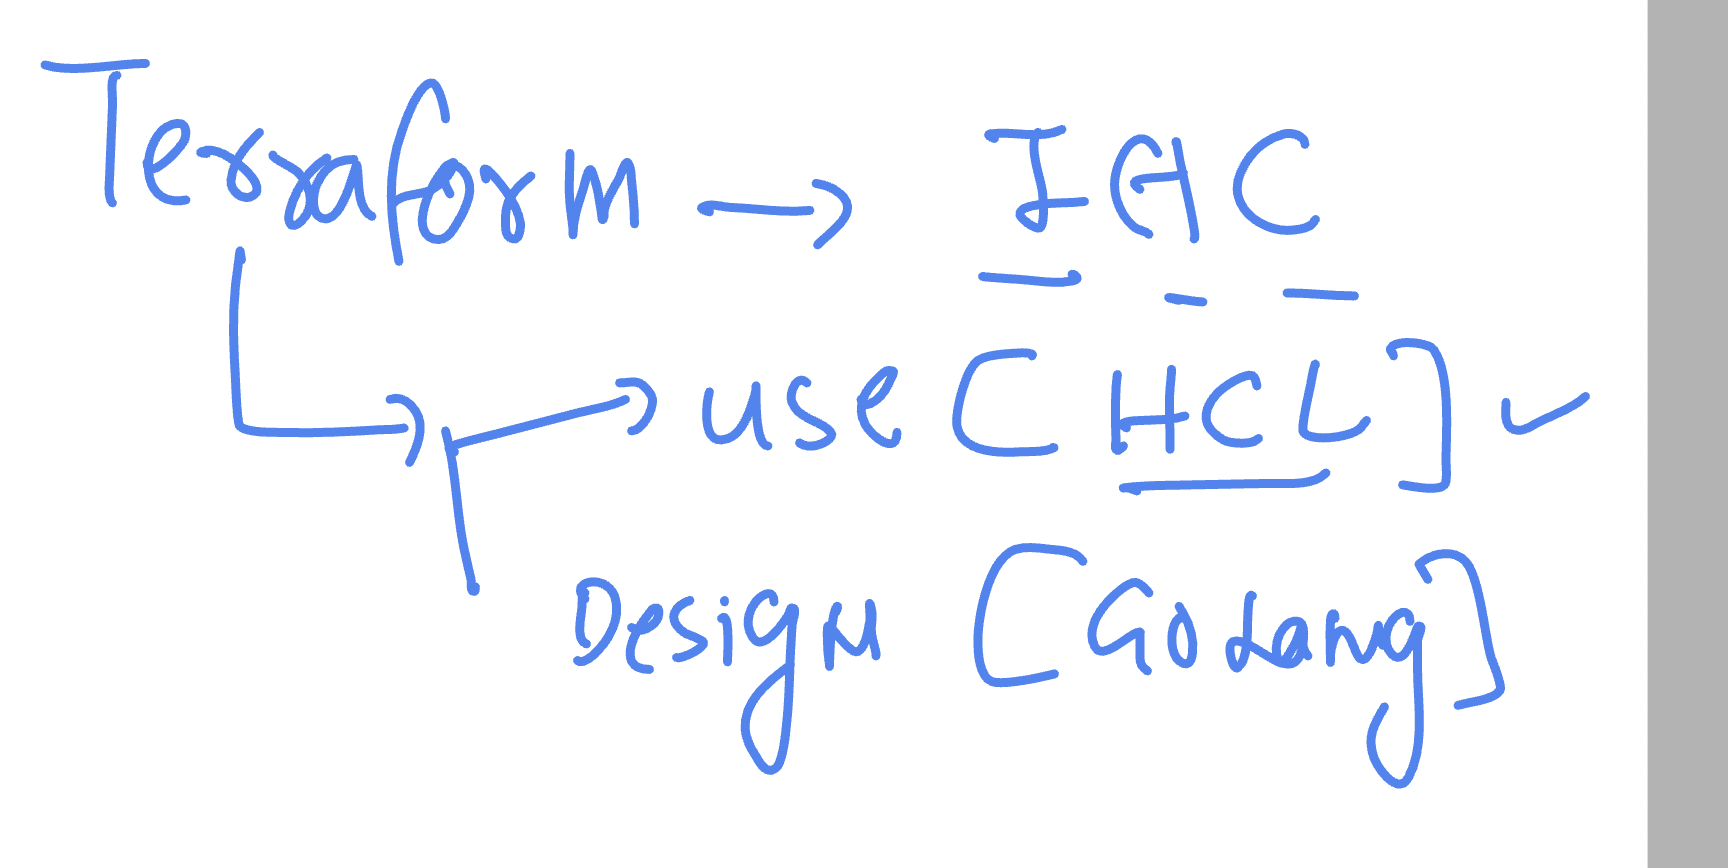 Terraform → IAC
use [HCL] ✓
Design [GoLang]